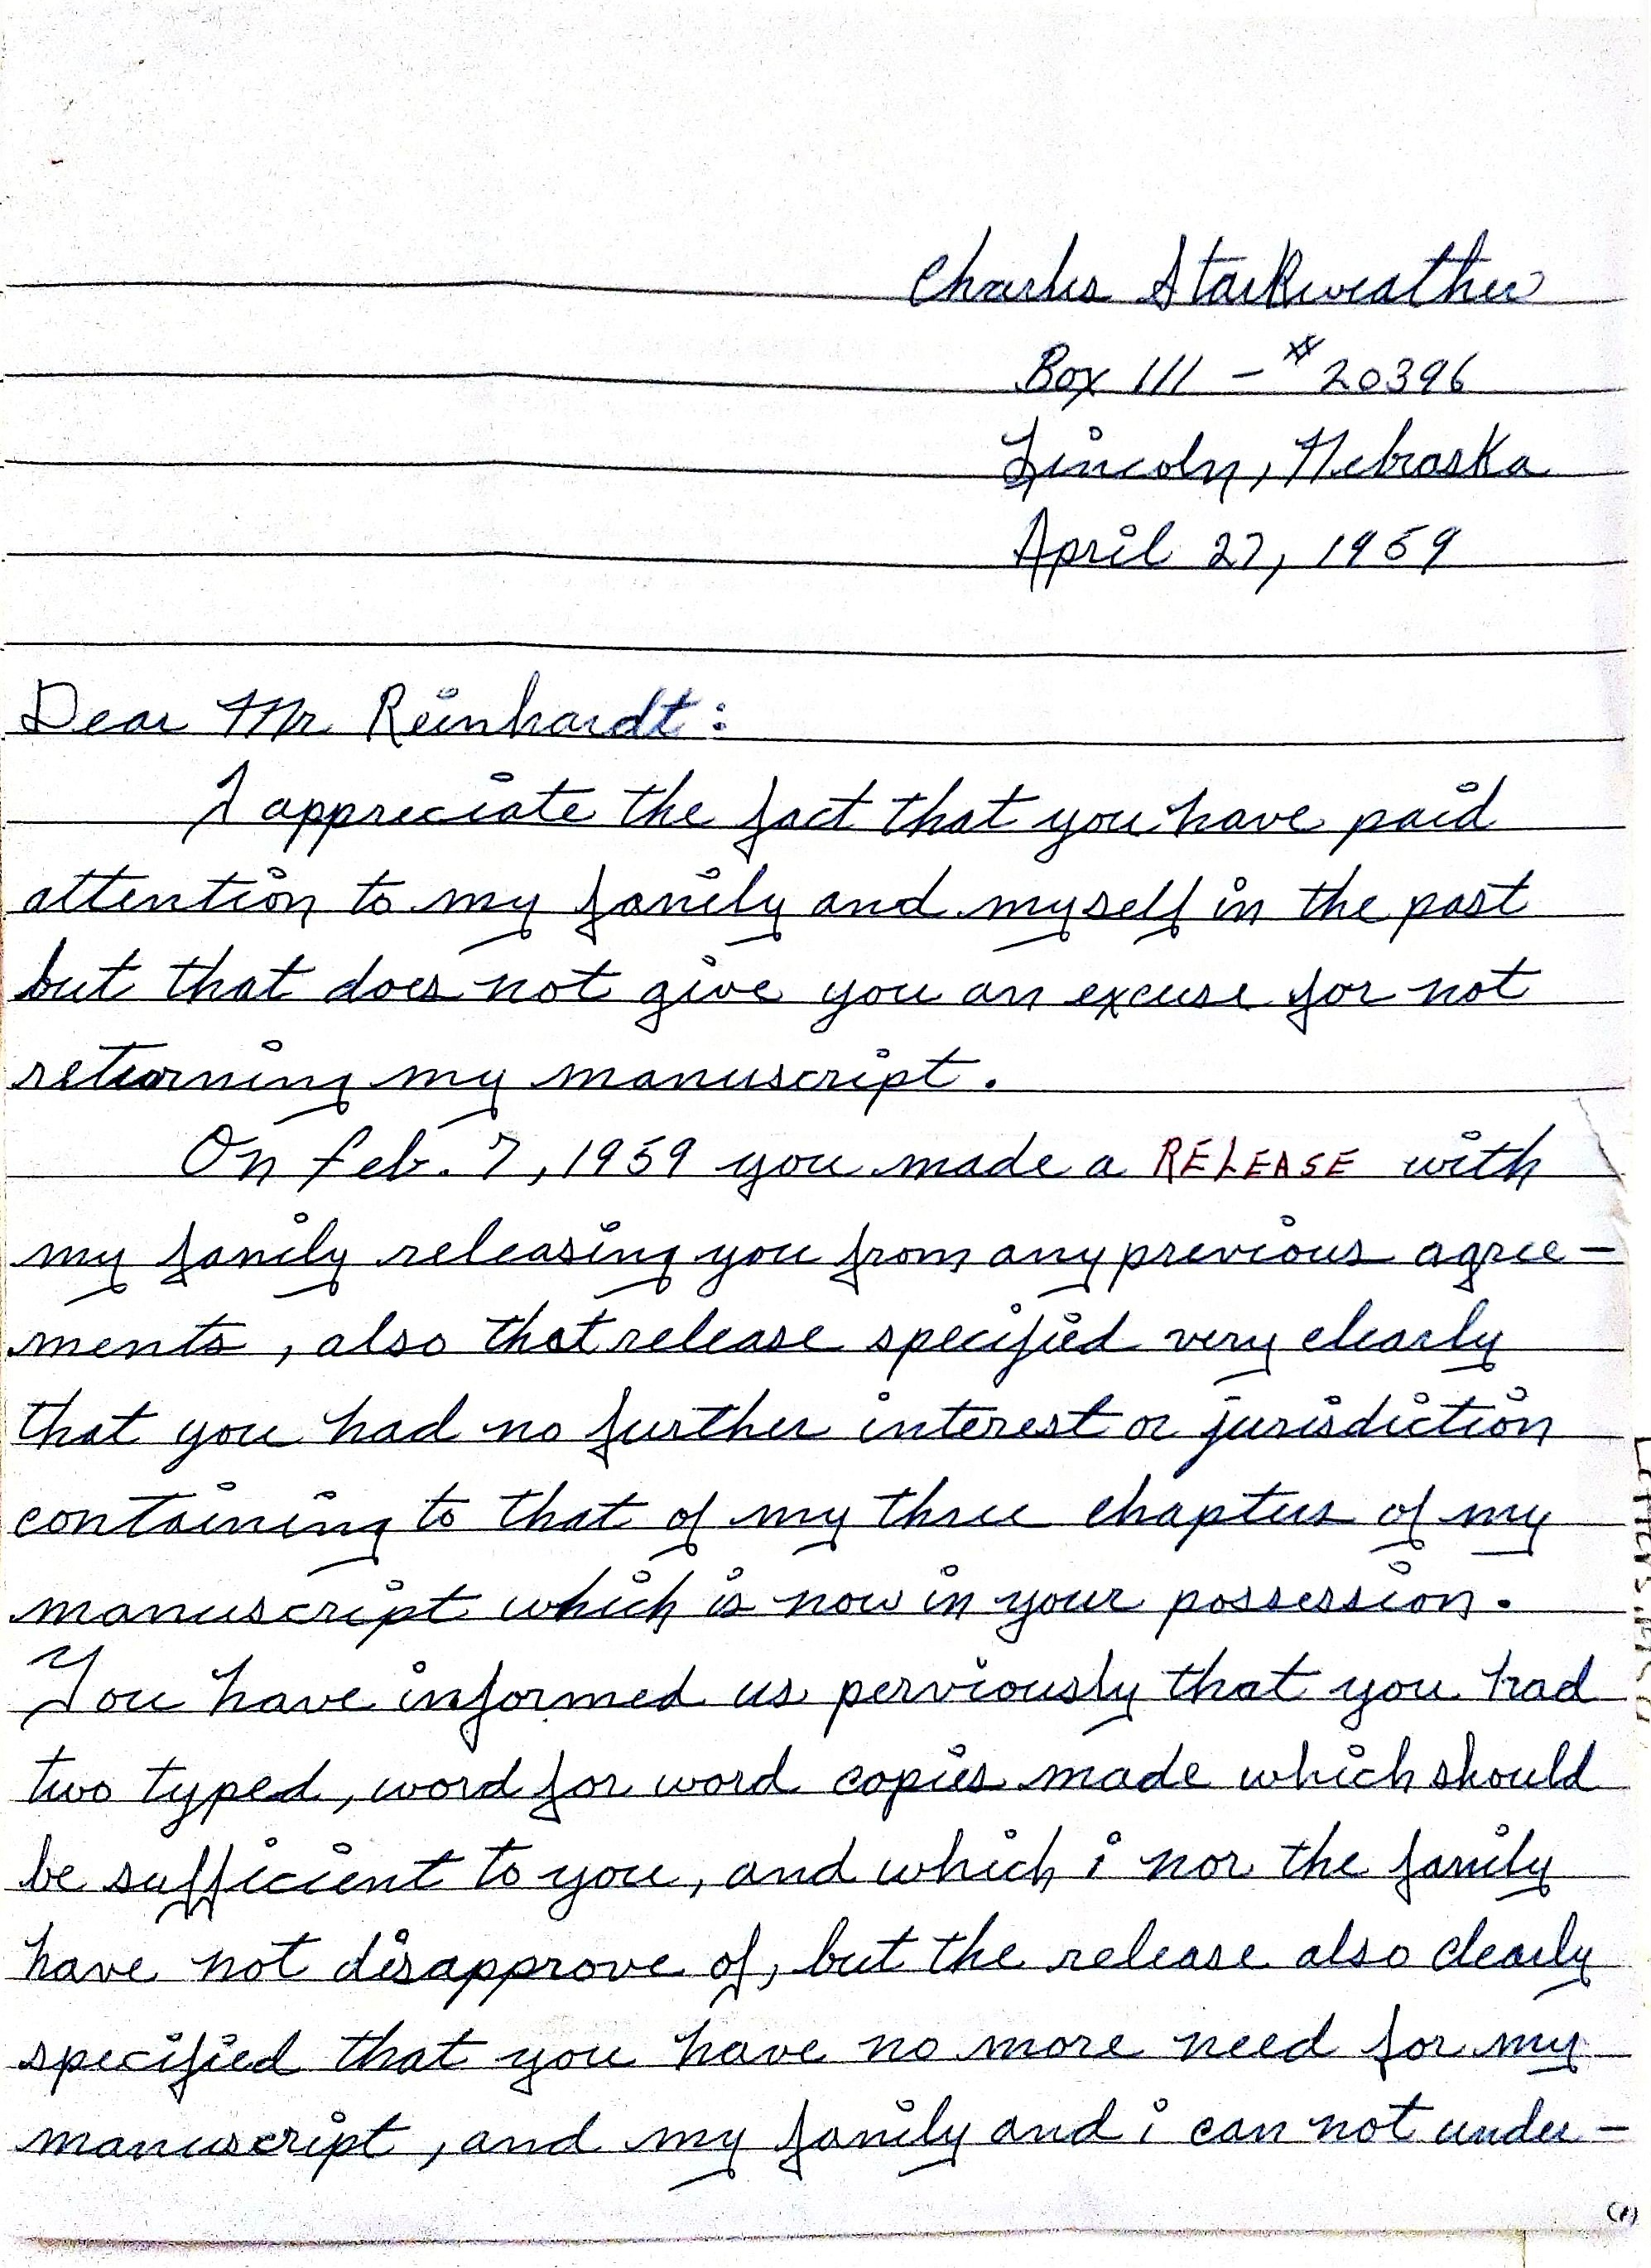 Charles Starkweather
Box 111 - #20396
Lincoln, Nebraska
April 27, 1959
Dear Mr Reinhardt:
I appreciate the fact that you have paid
attention to my family and myself in the past
but that does not give you an excuse for not
returning my manuscript.
On feb. 7, 1959 you made a RELEASE with
my family releasing you from any previous agree-
ments, also that release specified very clearly
that you had no further interest or jurisdiction
containing to that of my three chapters of my
manuscript which is now in your possession.
You have informed us perviously that you had
two typed, word for word copies made which should
be sufficient to you, and which i nor the family
have not disapprove of, but the release also clearly
specified that you have no more need for my
manuscript, and my family and i can not under-
(1)